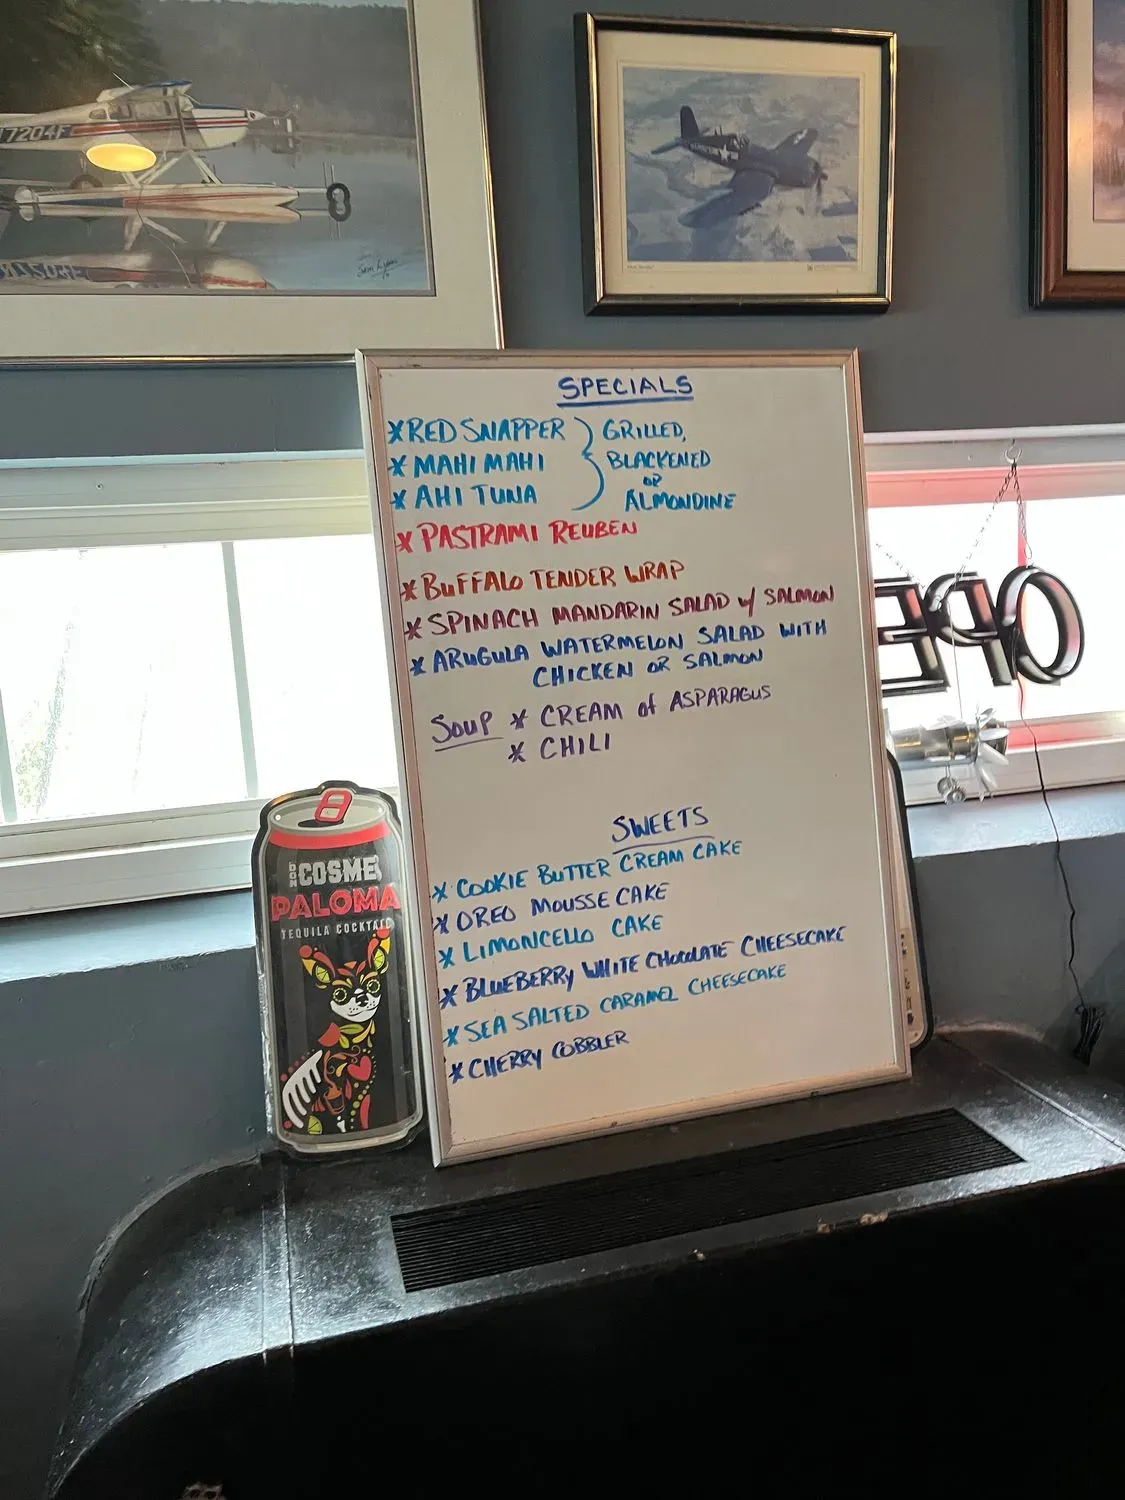 7204F
SPECIALS
* RED SNAPPER } GRILLED,
* MAHI MAHI BLACKENED
OR
* AHI TUNA ALMONDINE
* PASTRAMI REUBEN
* BUFFALO TENDER WRAP
* SPINACH MANDARIN SALAD w/ SALMON
* ARUGULA WATERMELON SALAD WITH
CHICKEN OR SALMON
SOUP * CREAM of ASPARAGUS
* CHILI
SWEETS
* COOKIE BUTTER CREAM CAKE
* OREO MOUSSE CAKE
* LIMONCELLO CAKE
* BLUEBERRY WHITE CHOCOLATE CHEESECAKE
* SEA SALTED CARAMEL CHEESECAKE
* CHERRY COBBLER
DON COSME
PALOMA
TEQUILA COCKTAIL
OPE